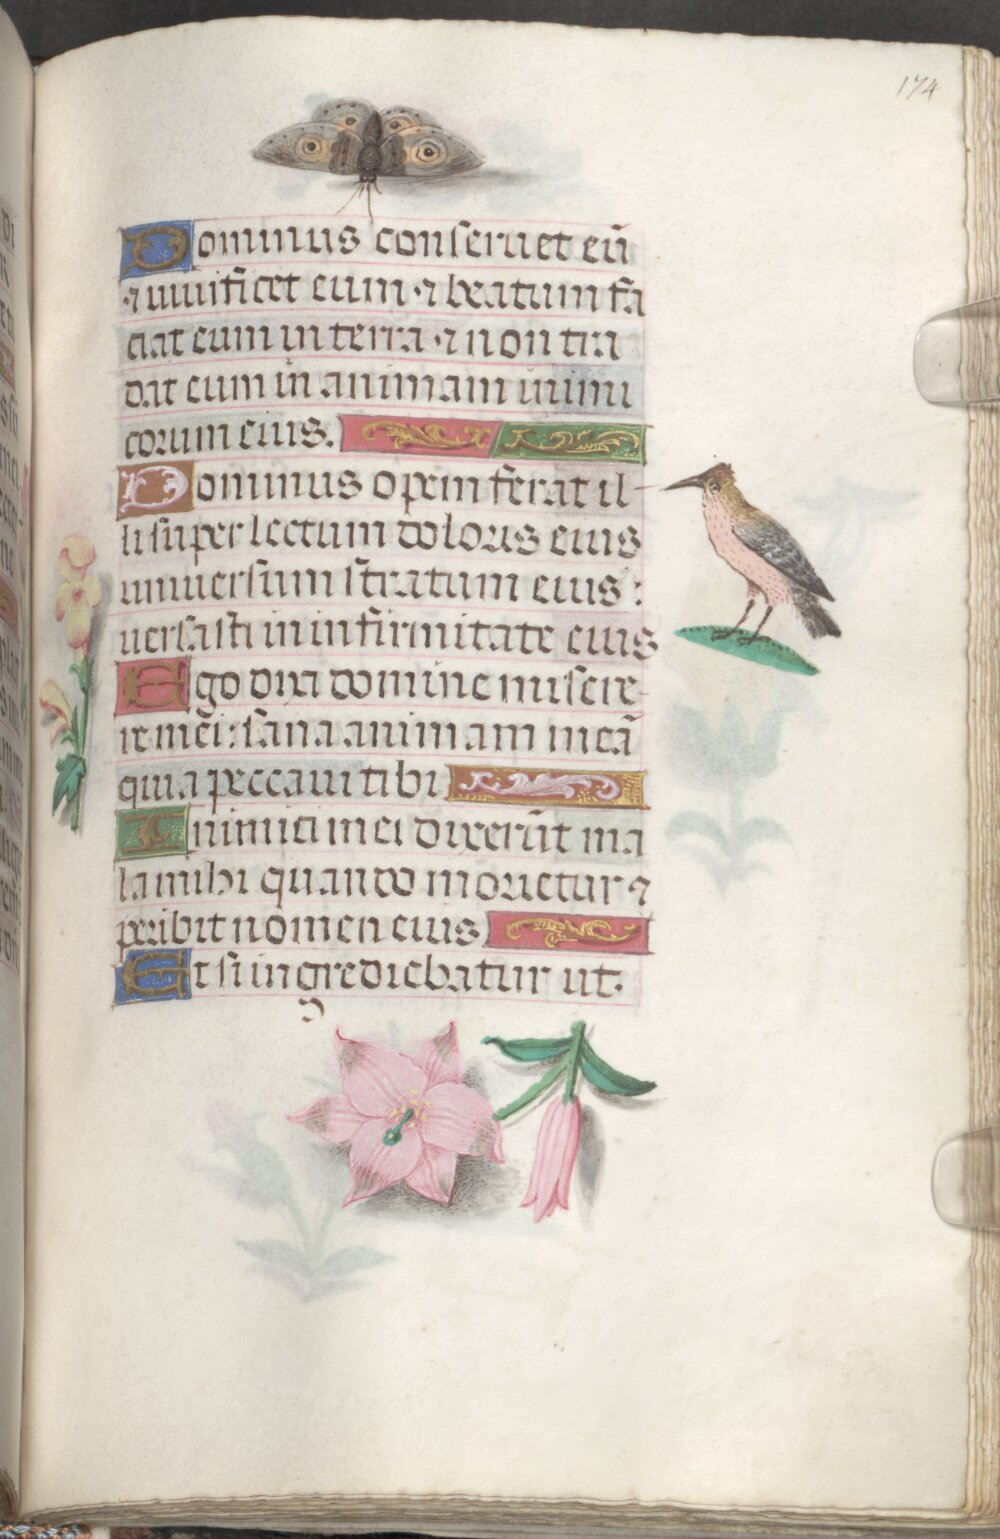 174
Dominus conseruet eū
⁊ uiuificet eum ⁊ beatum fa
ciat eum in terra ⁊ non tra
dat eum in animam inimi
corum eius.
Dominus opem ferat il-
li super lectum doloris eius
uniuersum stratum eius :
uersasti in infirmitate eius
Ego dixi domine misere-
re mei : sana animam meā
quia peccaui tibi
Inimici mei dixerūt ma
la mihi quando morietur ⁊
peribit nomen eius
Et si ingrediebatur ut.